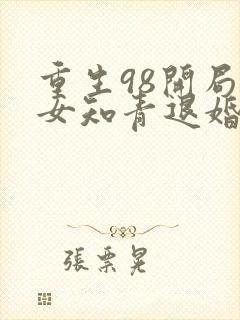 重生98開局
女知青退婚
張票晃